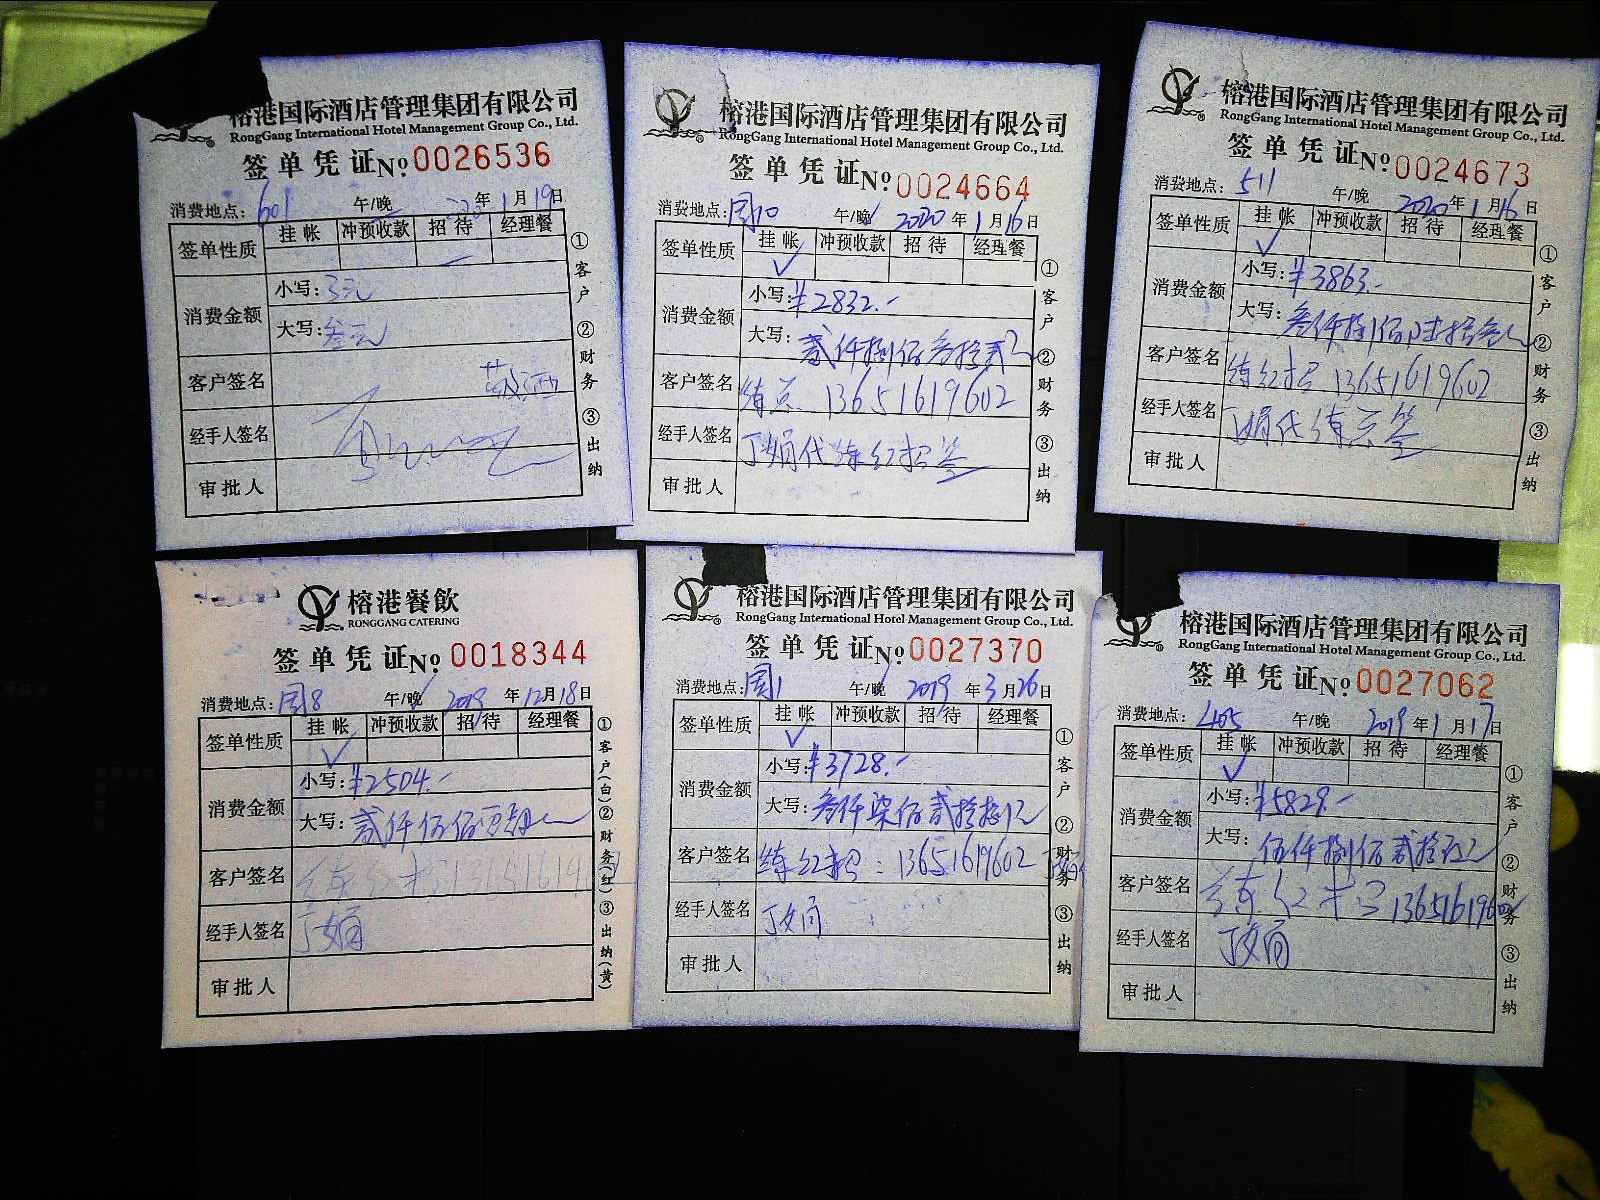 榕港国际酒店管理集团有限公司
RongGang International Hotel Management Group Co., Ltd.
签单凭证 No. 0026536
消费地点: 601 午/晚 年 1 月 19 日
签单性质 挂帐 冲预收款 招待 经理餐
消费金额 小写: 3元
大写: 叁元
客户签名
经手人签名
审批人
① 客户 ② 财务 ③ 出纳
榕港国际酒店管理集团有限公司
RongGang International Hotel Management Group Co., Ltd.
签单凭证 No. 0024664
消费地点: 周10 午/晚 2020 年 1 月 16 日
签单性质 挂帐 冲预收款 招待 经理餐
✓
消费金额 小写: ¥2832.-
大写: 贰仟捌佰叁拾贰元
客户签名 练总 13651619602
经手人签名 丁娟代练红招签
审批人
① 客户 ② 财务 ③ 出纳
榕港国际酒店管理集团有限公司
RongGang International Hotel Management Group Co., Ltd.
签单凭证 No. 0024673
消费地点: 511 午/晚 2020 年 1 月 16 日
签单性质 挂帐 冲预收款 招待 经理餐
✓
消费金额 小写: ¥3863.-
大写: 叁仟捌佰陆拾叁元
客户签名 练红招 13651619602
经手人签名 丁娟代练总签
审批人
① 客户 ② 财务 ③ 出纳
榕港餐飲
RONGGANG CATERING
签单凭证 No. 0018344
消费地点: 周8 午/晚 2019 年 12 月 18 日
签单性质 挂帐 冲预收款 招待 经理餐
✓
消费金额 小写: ¥2504.-
大写: 贰仟伍佰零肆元
客户签名
经手人签名 丁娟
审批人
① 客户(白) ② 财务(红) ③ 出纳(黄)
榕港国际酒店管理集团有限公司
RongGang International Hotel Management Group Co., Ltd.
签单凭证 No. 0027370
消费地点: 周1 午/晚 2019 年 3 月 26 日
签单性质 挂帐 冲预收款 招待 经理餐
✓
消费金额 小写: ¥3728.-
大写: 叁仟柒佰贰拾捌元
客户签名 练红招: 13651619602
经手人签名 丁娟
审批人
① 客户 ② 财务 ③ 出纳
榕港国际酒店管理集团有限公司
RongGang International Hotel Management Group Co., Ltd.
签单凭证 No. 0027062
消费地点: 405 午/晚 2019 年 1 月 17 日
签单性质 挂帐 冲预收款 招待 经理餐
✓
消费金额 小写: ¥5829.-
大写: 伍仟捌佰贰拾玖元
客户签名 练红招 13651619602
经手人签名 丁娟
审批人
① 客户 ② 财务 ③ 出纳